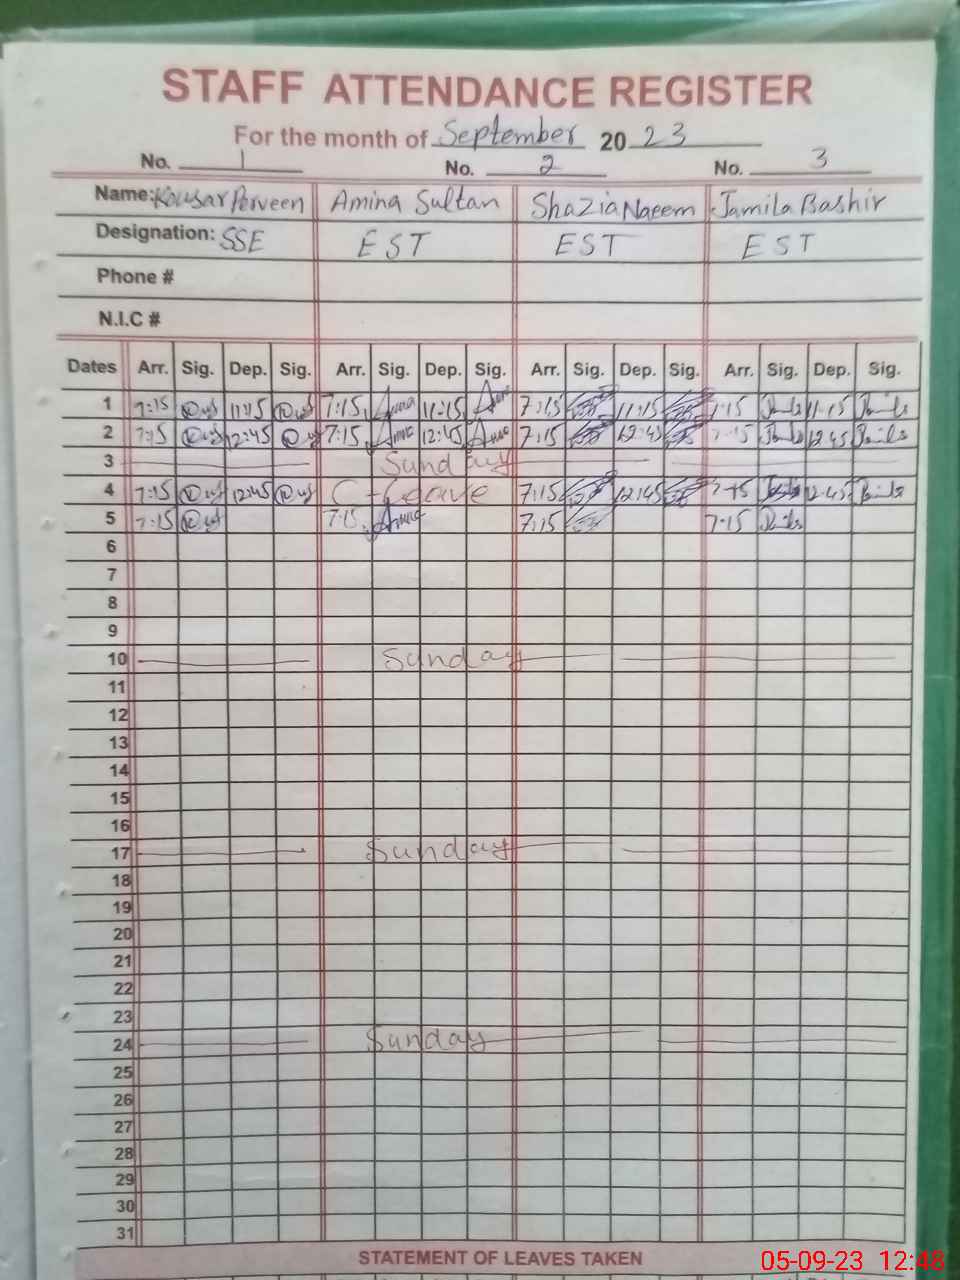 STAFF ATTENDANCE REGISTER
For the month of September 2023
No. 1 No. 2 No. 3
Name: Kousar Perveen Amina Sultan Shazia Naeem Jamila Bashir
Designation: SSE EST EST EST
Phone #
N.I.C #
Dates Arr. Sig. Dep. Sig. Arr. Sig. Dep. Sig. Arr. Sig. Dep. Sig. Arr. Sig. Dep. Sig.
1 7:15 11:15 7:15 11:15 7:15 11:15 7:15 11:15
2 7:15 12:45 7:15 12:45 7:15 12:45 7:15 12:45
3 Sunday
4 7:15 12:45 C-Leave 7:15 12:45 7:15 12:45
5 7:15 7:15 7:15 7:15
6
7
8
9
10 Sunday
11
12
13
14
15
16
17 Sunday
18
19
20
21
22
23
24 Sunday
25
26
27
28
29
30
31
STATEMENT OF LEAVES TAKEN
05-09-23 12:48